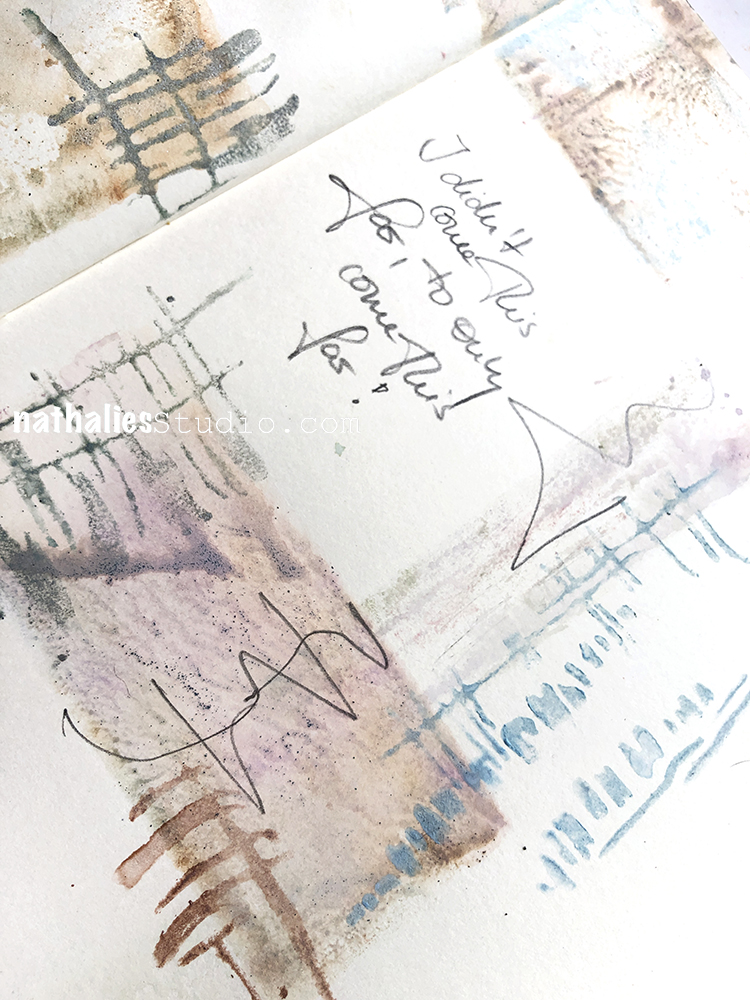 I didn't
come This
far, to only
come This
far!
nathaliesStudio.com